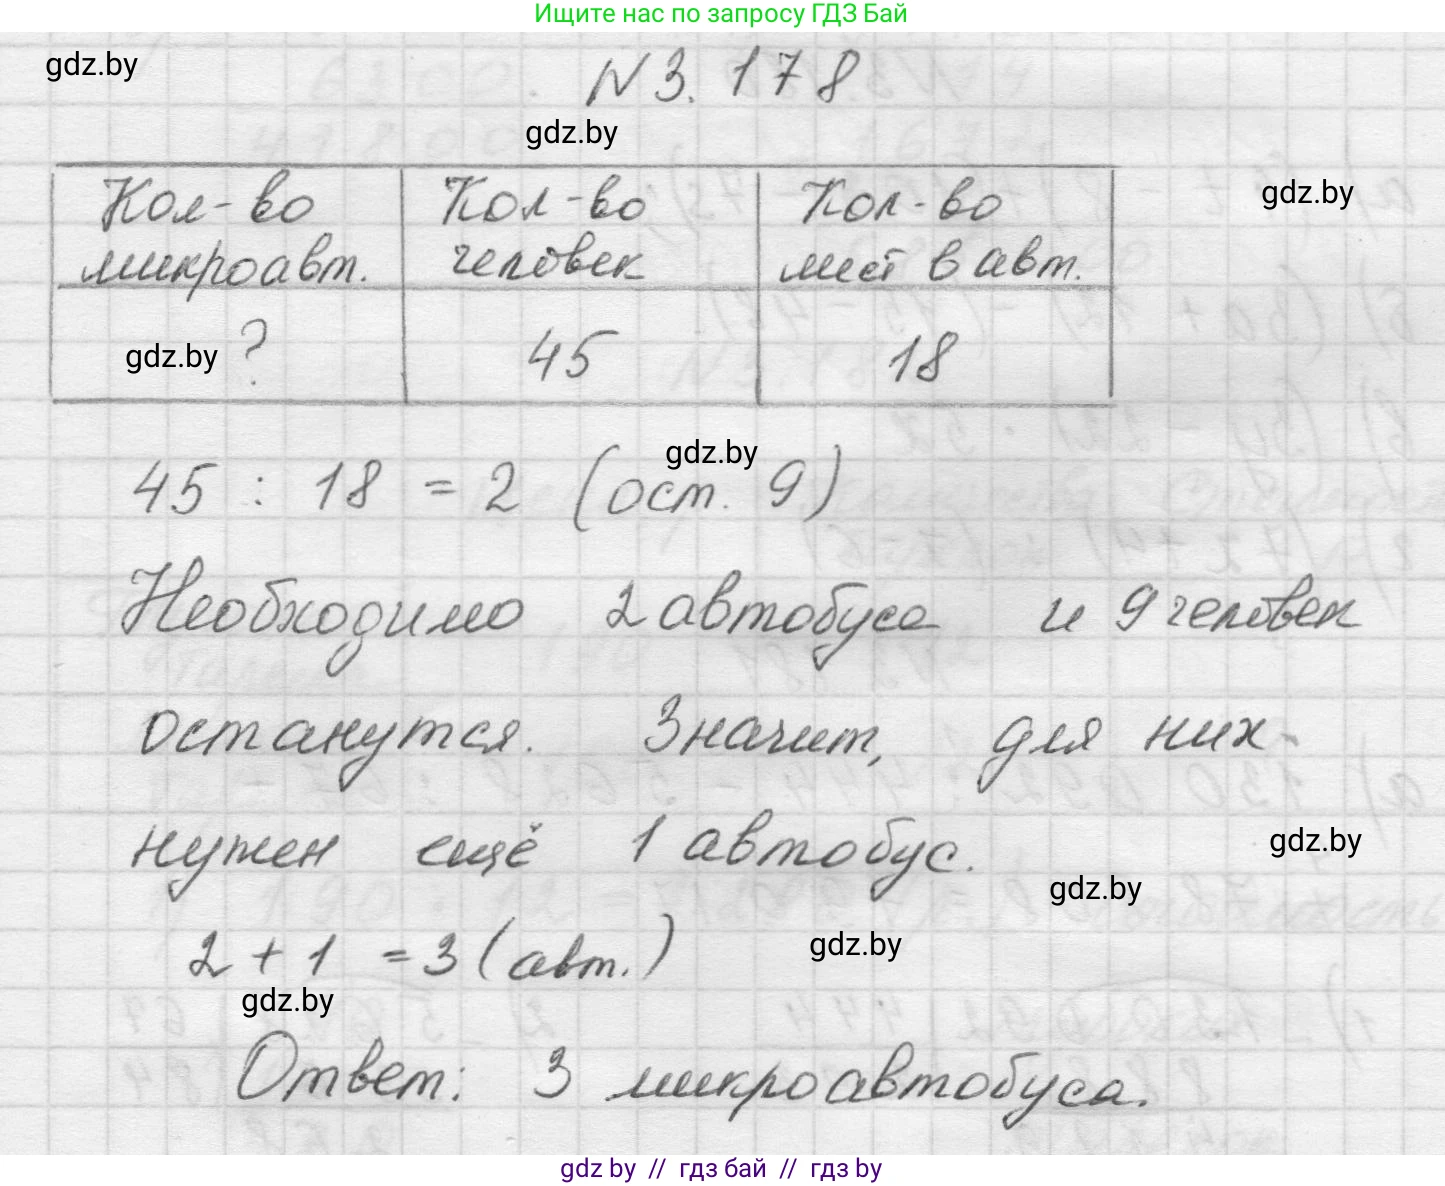 Ищите нас по запросу ГДЗ Бай
gdz.by
N 3.178
gdz.by
Кол-во микроавт.
Кол-во человек
Кол-во мест в авт.
gdz.by
gdz.by ?
45
18
gdz.by
45 : 18 = 2 (ост. 9)
Необходимо 2 автобуса и 9 человек
останутся. Значит, для них
нужен ещё 1 автобус.
gdz.by
gdz.by
2 + 1 = 3 (авт.)
gdz.by
gdz.by
Ответ: 3 микроавтобуса.
gdz by // гдз бай // гдз by